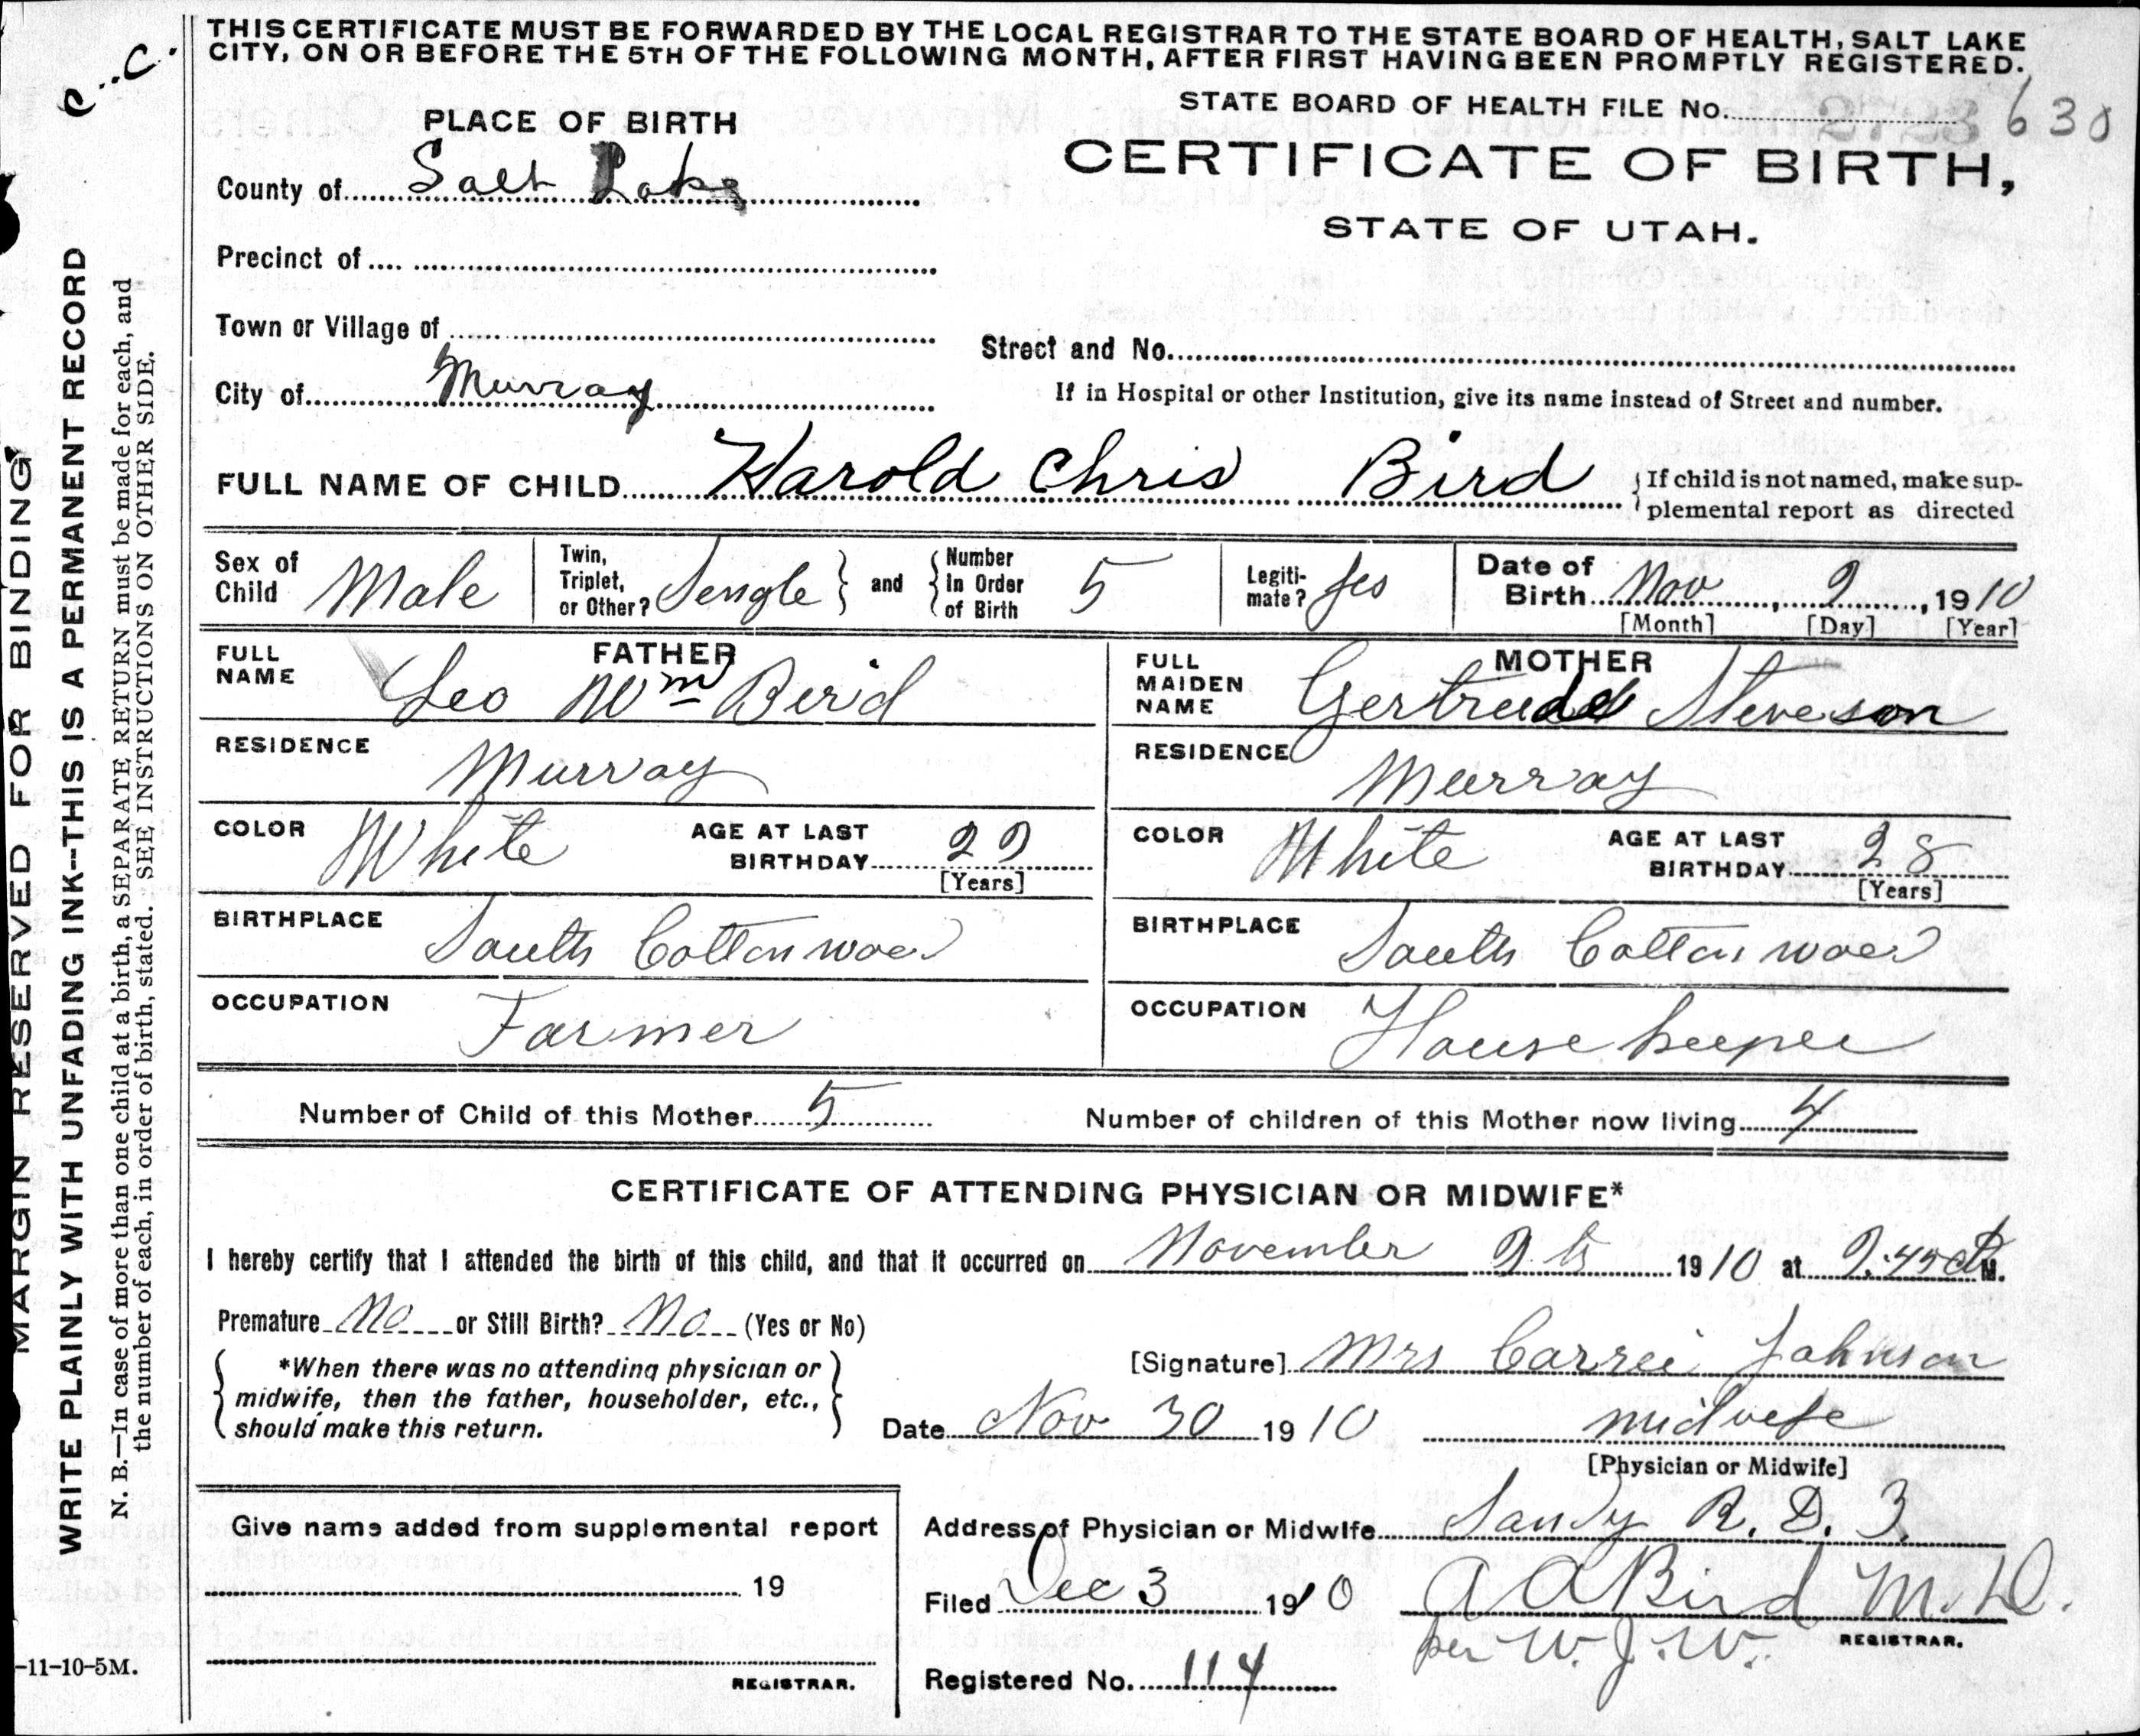 THIS CERTIFICATE MUST BE FORWARDED BY THE LOCAL REGISTRAR TO THE STATE BOARD OF HEALTH, SALT LAKE
CITY, ON OR BEFORE THE 5TH OF THE FOLLOWING MONTH, AFTER FIRST HAVING BEEN PROMPTLY REGISTERED.
STATE BOARD OF HEALTH FILE No. 630
CERTIFICATE OF BIRTH,
STATE OF UTAH.
PLACE OF BIRTH
County of Salt Lake
Precinct of
Town or Village of
Street and No.
City of Murray
If in Hospital or other Institution, give its name instead of Street and number.
FULL NAME OF CHILD Harold Chris Bird
If child is not named, make sup-
plemental report as directed
Sex of Child Male
Twin, Triplet, or Other? Sengle and Number in Order of Birth 5
Legiti-mate? yes
Date of Birth Nov 9, 1910
[Month] [Day] [Year]
FATHER
FULL NAME Leo Wm Berid
RESIDENCE Murray
COLOR White AGE AT LAST BIRTHDAY 29
[Years]
BIRTHPLACE South Cottonwood
OCCUPATION Farmer
MOTHER
FULL MAIDEN NAME Gertrude Steveson
RESIDENCE Murray
COLOR White AGE AT LAST BIRTHDAY 28
[Years]
BIRTHPLACE South Cottonwood
OCCUPATION House keeper
Number of Child of this Mother 5 Number of children of this Mother now living 4
CERTIFICATE OF ATTENDING PHYSICIAN OR MIDWIFE*
I hereby certify that I attended the birth of this child, and that it occurred on November 9th 1910 at 9.45 M.
Premature No or Still Birth? No (Yes or No)
*When there was no attending physician or
midwife, then the father, householder, etc.,
should make this return.
[Signature] Mrs Carrei Johnson
Date Nov 30 1910 midwife
[Physician or Midwife]
Give name added from supplemental report
19
REGISTRAR.
Address of Physician or Midwife Sandy R. D. 3.
Filed Dec 3 1910 A A Bird M.D.
per W. J. W.
REGISTRAR.
Registered No. 114
MARGIN RESERVED FOR BINDING
WRITE PLAINLY WITH UNFADING INK--THIS IS A PERMANENT RECORD
N. B.—In case of more than one child at a birth, a SEPARATE RETURN must be made for each, and
the number of each, in order of birth, stated. SEE INSTRUCTIONS ON OTHER SIDE.
-11-10-5M.